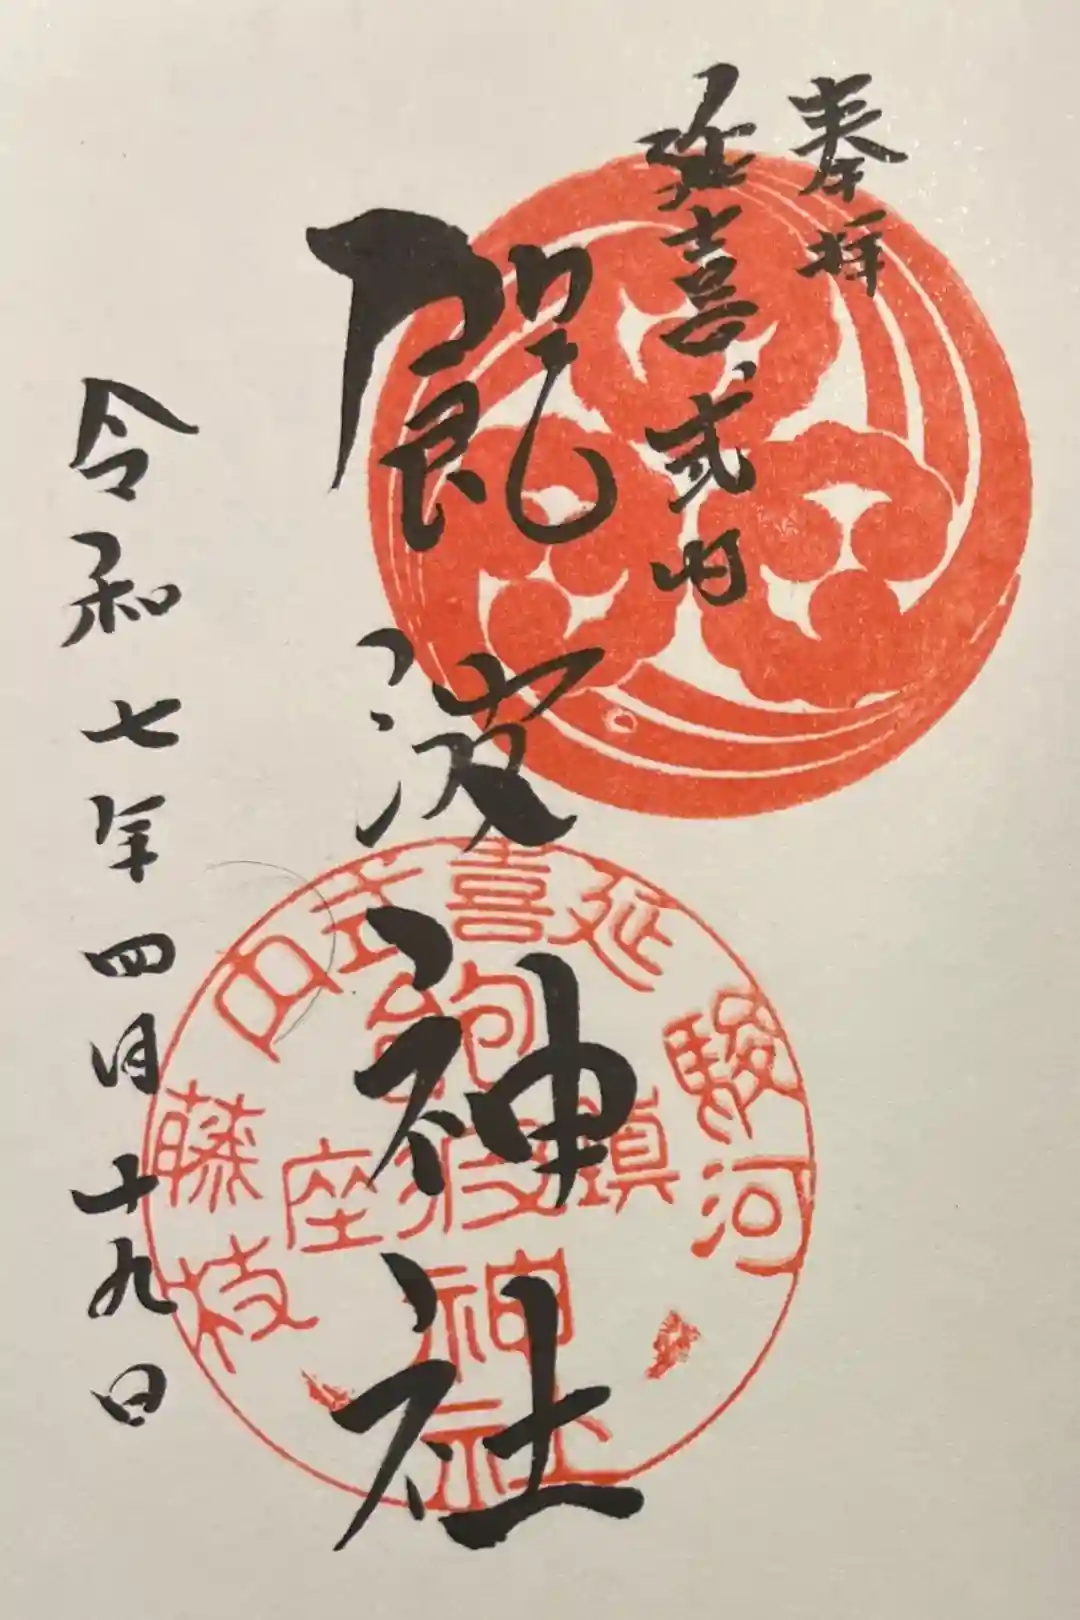 奉拝
延喜式内
飽波神社
令和七年四月十九日
駿河
延喜式内
藤枝
鎮座
飽波神社